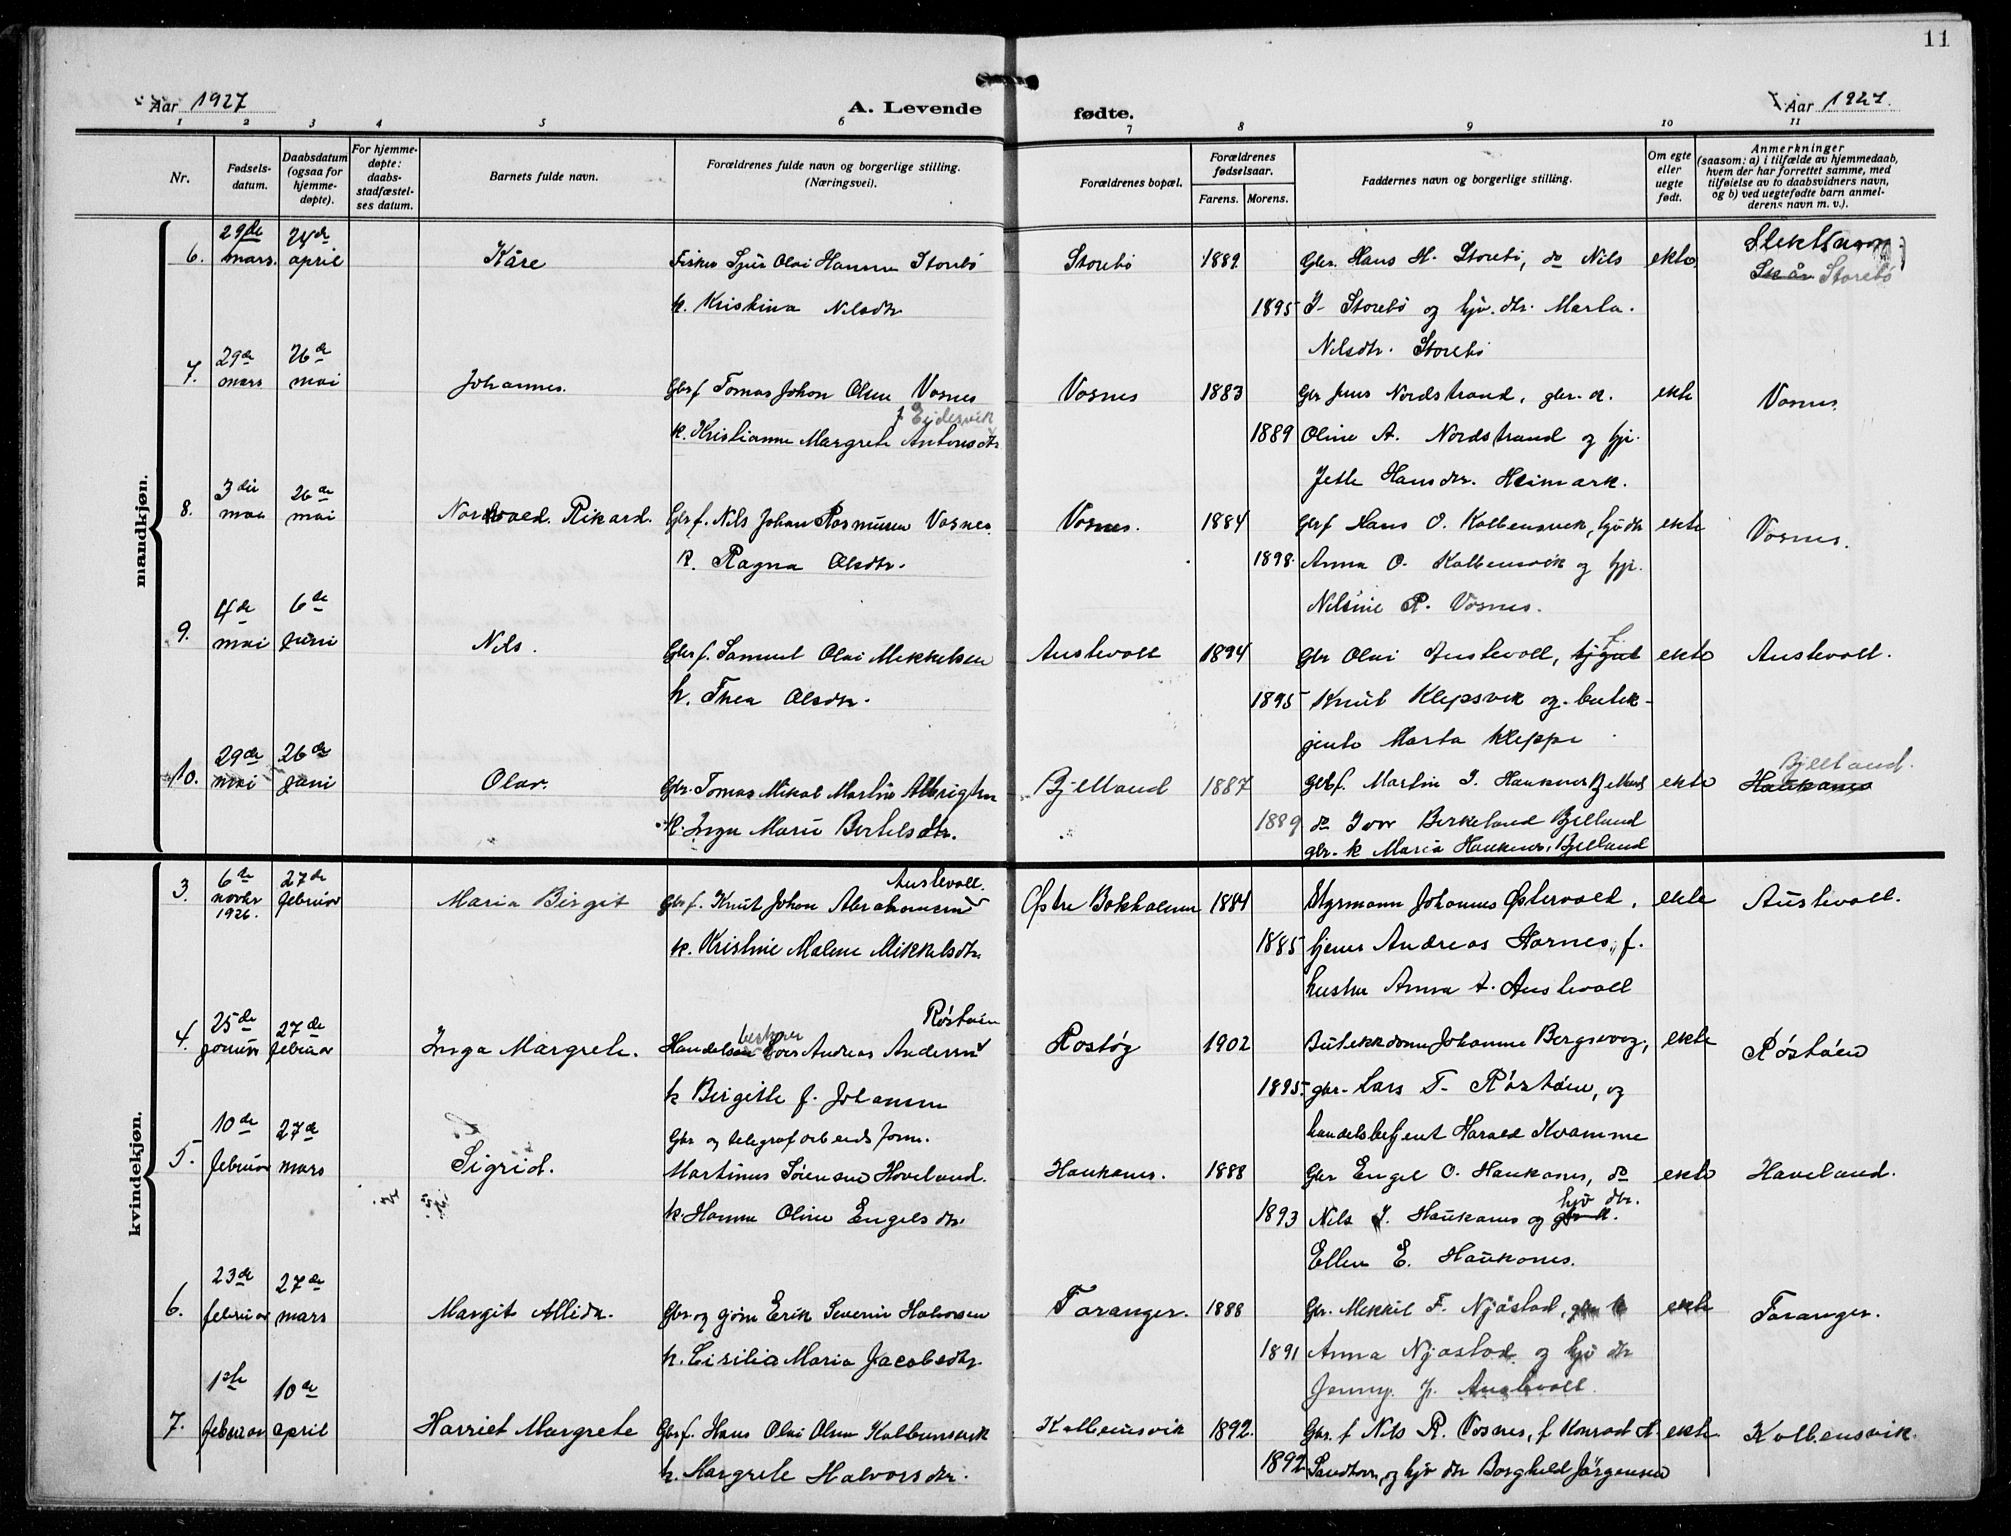 11
Aar 1927
A. Levende fødte.
Aar 1927.
1 2 3 4 5 6 7 8 9 10 11
Nr.
Fødsels-
datum.
Daabsdatum
(ogsaa for
hjemme-
døpte).
For hjemme-
døpte:
daabs-
stadfæstel-
ses datum.
Barnets fulde navn.
Forældrenes fulde navn og borgerlige stilling.
(Næringsvei).
Forældrenes bopæl.
Forældrenes
fødselsaar.
Farens. Morens.
Faddernes navn og borgerlige stilling.
Om egte
eller
uegte
født.
Anmerkninger
(saasom: a) i tilfælde av hjemmedaab,
hvem der har forrettet samme, med
tilføielse av to daabsvidners navn,
og b) ved uegtefødte barn anmel-
derens navn m. v.).
mandkjøn.
29de
6. mars april Kåre Fisker Sjur Olai Hansen Storebø Storebø 1889 Gbr. Hans H. Storebø, do Nils ekte
Storebø
k. Kristina Nilsdtr 1895 I. Storebø og hjv. dtr. Marta
Nilsdtr. Storebø
29de 26de
7. mars mai Johannes. Gbrf Tomas Johan Olsen Vosnes Vosnes 1883 Gbr Jens Nordstrand, gbr. k. ekte Vosnes
k. Kristianne Margrete Antonsdtr 1889 Oline A. Nordstrand og hjv.
Jette Hansdtr. Heimark.
3die 26de
8. mai mai Norvald Rikard. Gbrf. Nils Johan Rasmussen Vosnes. Vosnes. 1884 Gbrf Hans O. Kolbensvik, hjv dtr ekte Vosnes.
k. Ragna Olsdtr. 1898. Anna O. Kolbensvik og hjv.
Nilsine R. Vosnes.
4de 6te
9. mai juni Nils. Gbrf. Samuel Olai Mikkelsen Austevoll 1894 Gbr Olai Austevoll, ekte Austevoll.
k. Thea Olsdtr. 1895 Knut Klepsvik og butik-
jente Marta Kleppe
29de 26de
10. mai juni Olav. Gbr. Tomas Mikal Martin Albrigtsen Bjelland 1887 Gbrf. Martin I. Haukanes Bjelland ekte Haukanes
Bjelland.
k. Inga Marie Bertelsdtr. 1889 do Ivar Birkeland Bjelland
gbr. k Maria Haukanes, Bjelland
kvindekjøn.
6te 27de
3. novbr februar Maria Birgit Gbrf. Knut Johan Abrahamsen Austevoll. Østre Bakholmen 1884 Styrmann Johannes Østervold, ekte Austevoll.
1926. k. Kristine Malene Mikkelsdtr 1885 tjener Andreas Harnes, f.
hustru Anna A. Austevoll
25de 27de
4. januar februar Inga Margrete. Andreas Andersen Røstøen Rostøy 1902 Johanne Bergsvaag, ekte Røstøen
k Birgitte f. Johansen 1895. gbr. Lars T. Røstøen, og
handelsbetjent Harald Kvamme
10de 27de Gbr og telegrafarbeidsform.
5. februar mars Sigrid. Martinus Sørensen Hoveland. Haukanes. 1888 Gbr Engel O. Haukanes, do ekte Haveland.
k. Hanna Oline Engelsdtr. 1893 Nils J. Haukanes og hjv dtr.
Ellen E. Haukanes.
23de 27de
6. februar mars Margit Allida. Gbr og gjøm Erik Severin Halvorsen Foranger. 1888 Gbr. Mikkil F. Njåstad, ekte Foranger.
k. Cisilia Maria Jacobsdtr. 1891 Anna Njåstad og hjv dtr
Jenny J. Austevoll.
1ste 10de
7. februar april Harriet Margrete Gbrf. Hans Olai Olsen Kolbensvik Kolbeinsvik 1892. Gbr. f Nils R. Vosnes, f Konrad M. ekte Kolbensvik.
k. Margrete Halvorsdtr. 1892 Sandtorv, og hjv dtr Borghild Jørgensen